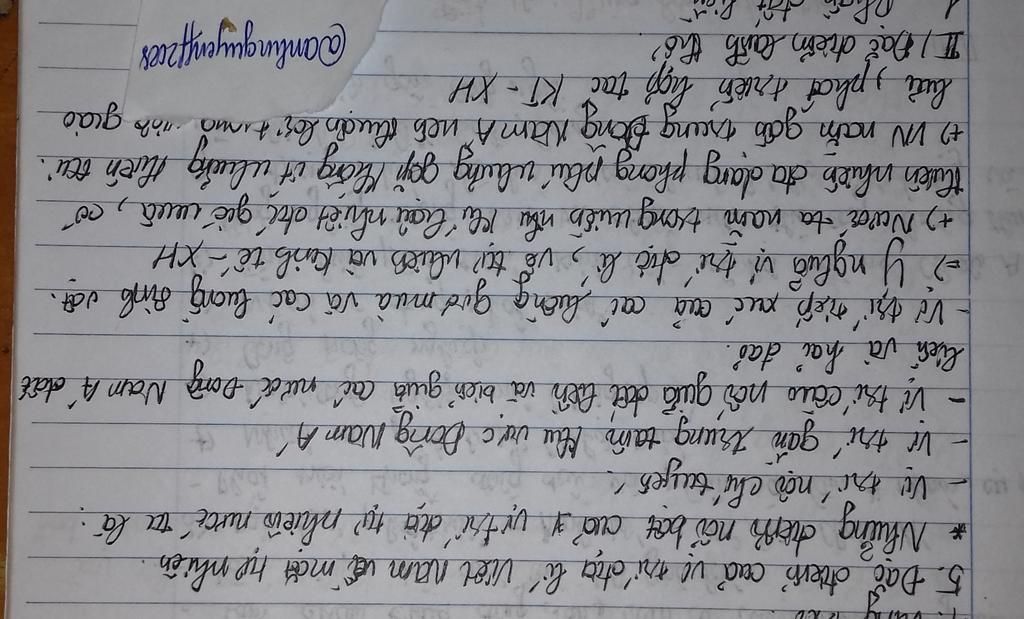 5. Đặc điểm của vị trí địa lí Việt Nam về mặt tự nhiên.
* Những điểm nổi bật của vị trí địa tự nhiên nước ta là:
- Vị trí nội chí tuyến.
- Vị trí gần trung tâm khu vực Đông Nam Á
- Vị trí cầu nối giữa đất liền và biển giữa các nước Đông Nam Á đất
liền và hải đảo.
- Vị trí tiếp xúc của các luồng gió mùa và các luồng sinh vật.
=> Ý nghĩa vị trí địa lí, về tự nhiên và kinh tế - XH
+) Nước ta nằm trong miền nhiệt đới gió mùa, có
thiên nhiên đa dạng phong phú nhưng gặp không ít nhưng thiên tai.
+) VN nằm gần trung Đông Nam Á nên thuận lợi giao
lưu, phát triển hợp tác KT - XH
II) Đặc điểm lãnh thổ
1. Phần đất liền
@anlinguyenff2005